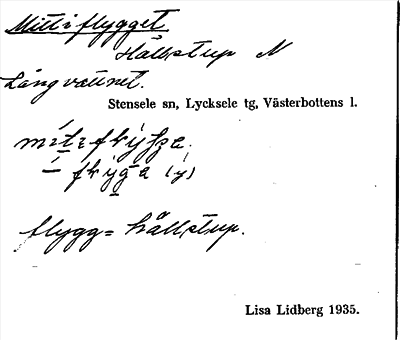 Mitti flygget
Hällstup N
Långvattnet.
Stensele sn, Lycksele tg, Västerbottens l.
flygg = hållstup.
Lisa Lidberg 1935.